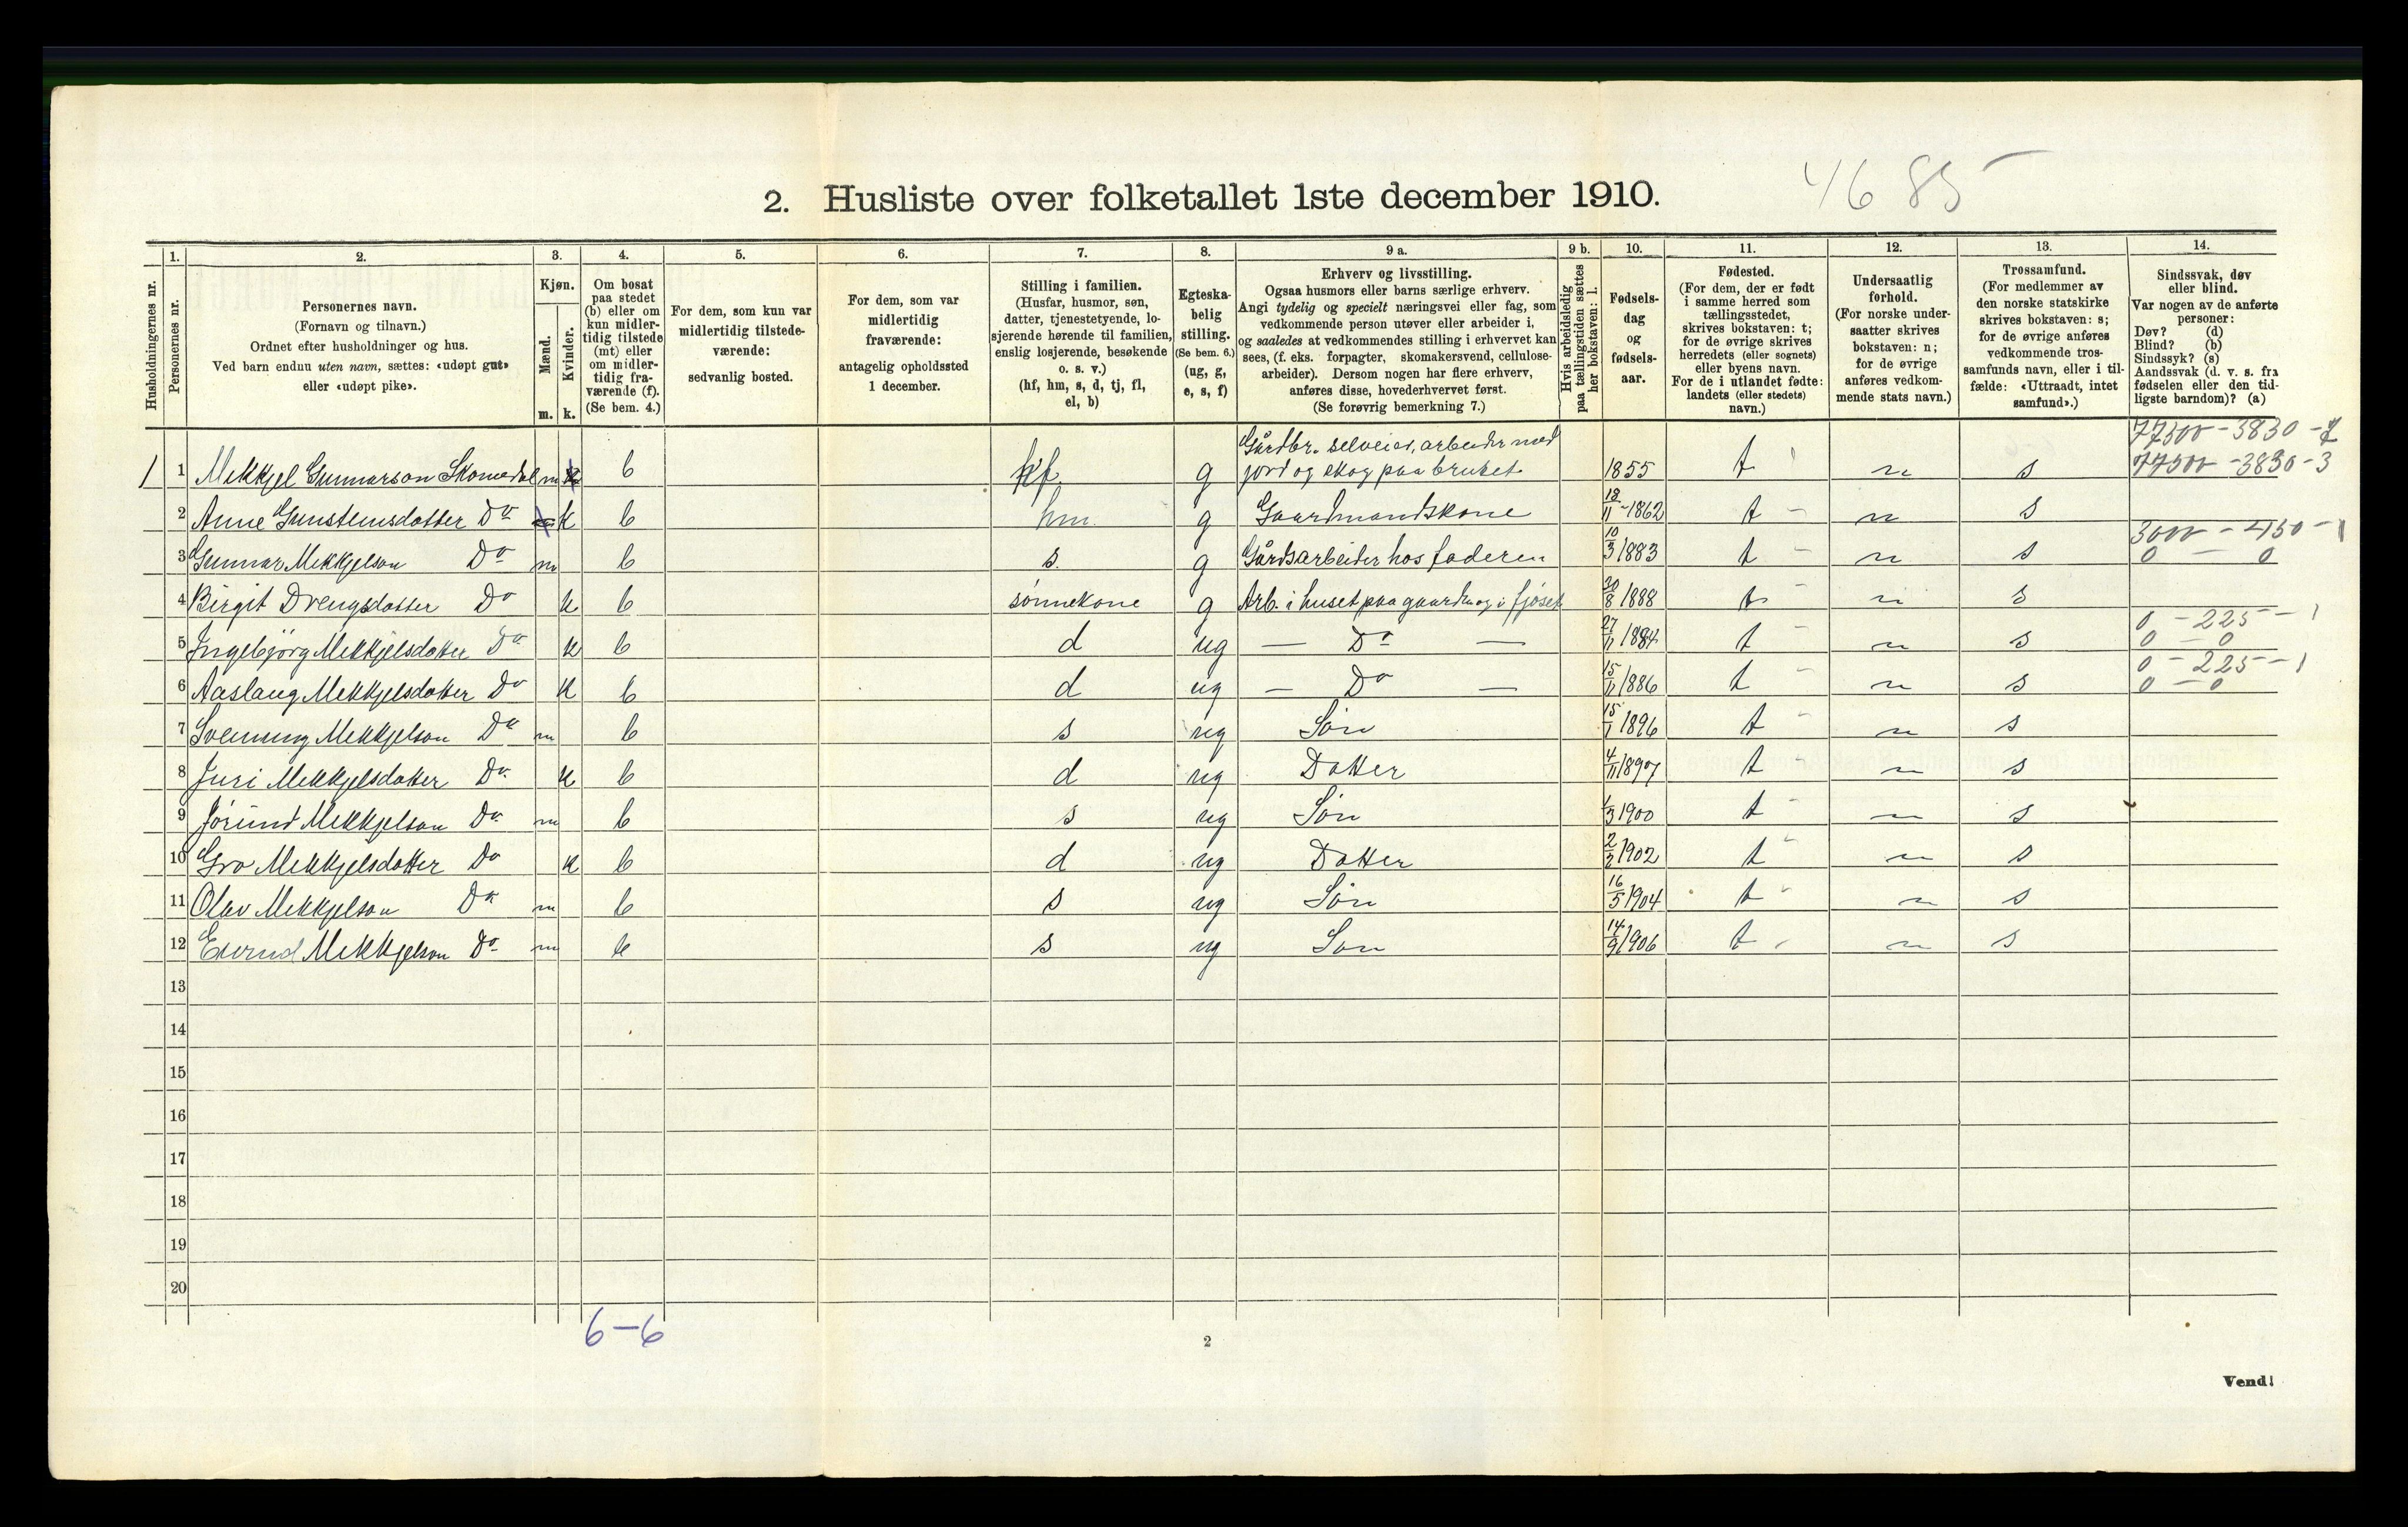 2. Husliste over folketallet 1ste december 1910.
4685
1. 2. 3. 4. 5. 6. 7. 8. 9 a. 9 b. 10. 11. 12. 13. 14.
Husholdningernes nr.
Personernes nr.
Personernes navn.
(Fornavn og tilnavn.)
Ordnet efter husholdninger og hus.
Ved barn endnu uten navn, sættes: «udøpt gut»
eller «udøpt pike».
Kjøn.
Mænd.
Kvinder.
m. k.
Om bosat
paa stedet
(b) eller om
kun midler-
tidig tilstede
(mt) eller
om midler-
tidig fra-
værende (f).
(Se bem. 4.)
For dem, som kun var
midlertidig tilstede-
værende:
sedvanlig bosted.
For dem, som var
midlertidig
fraværende:
antagelig opholdssted
1 december.
Stilling i familien.
(Husfar, husmor, søn,
datter, tjenestetyende, lo-
sjerende hørende til familien,
enslig losjerende, besøkende
o. s. v.)
(hf, hm, s, d, tj, fl,
el, b)
Egteska-
belig
stilling.
(Se bem. 6.)
(ug, g,
e, s, f)
Erhverv og livsstilling.
Ogsaa husmors eller barns særlige erhverv.
Angi tydelig og specielt næringsvei eller fag, som
vedkommende person utøver eller arbeider i,
og saaledes at vedkommendes stilling i erhvervet kan
sees, (f. eks. forpagter, skomakersvend, cellulose-
arbeider). Dersom nogen har flere erhverv,
anføres disse, hovederhvervet først.
(Se forøvrig bemerkning 7.)
Hvis arbeidsledig
paa tællingstiden sættes
her bokstaven: l.
Fødsels-
dag
og
fødsels-
aar.
Fødested.
(For dem, der er født
i samme herred som
tællingsstedet,
skrives bokstaven: t;
for de øvrige skrives
herredets (eller sognets)
eller byens navn.
For de i utlandet fødte:
landets (eller stedets)
navn.)
Undersaatlig
forhold.
(For norske under-
saatter skrives
bokstaven: n;
for de øvrige
anføres vedkom-
mende stats navn.)
Trossamfund.
(For medlemmer av
den norske statskirke
skrives bokstaven: s;
for de øvrige anføres
vedkommende tros-
samfunds navn, eller i til-
fælde: «Uttraadt, intet
samfund».)
Sindssvak, døv
eller blind.
Var nogen av de anførte
personer:
Døv? (d)
Blind? (b)
Sindssyk? (s)
Aandssvak (d. v. s. fra
fødselen eller den tid-
ligste barndom)? (a)
Gårdbr. selveier, arbeider med 77500-3830-
1 1 Mekkjel Gunnarson Skomedal m b hf. g jord og skog paa bruket 1855 t n s 77500-3830-3
2 Anne Gunsteinsdotter Do k b hm. g Gaardmandskone 18/11-1862 t n s
3000-450-1
3 Gunnar Mekkjelson Do m b s. g Gårdsarbeider hos faderen 10/3 1883 t n s 0-0
4 Birgit Drengsdotter Do k b sønnekone g Arb. i huset paa gaarden og i fjøset 30/8 1888 t n s
0-225-1
5 Ingebjørg Mekkjelsdotter Do k b d ug - Do - 27/11 1884 t n s 0-0
0-225-1
6 Aaslaug Mekkjelsdotter Do k b d ug - Do - 15/11 1886 t n s 0-0
7 Svenung Mekkjelson Do m b s ug Søn 15/1 1896 t n s
8 Juri Mekkjelsdotter Do k b d ug Dotter 4/11 1897 t n s
9 Jørund Mekkjelson Do m b s ug Søn 1/3 1900 t n s
10 Gro Mekkjelsdotter Do k b d ug Dotter 1902 t n s
11 Olav Mekkjelson Do m b s ug Søn 16/5 1904 t n s
12 Eivind Mekkjelson Do m b s ug Søn 14/9 1906 t n s
13
14
15
16
17
18
19
20
6-6
2
Vend!